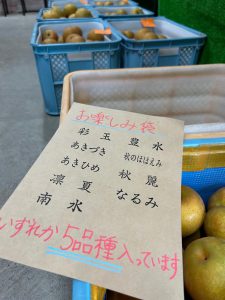 お楽しみ袋
彩玉 豊水
あきづき 秋のほほえみ
あきひめ 秋麗
凛夏 なるみ
南水
いずれか5品種入っています